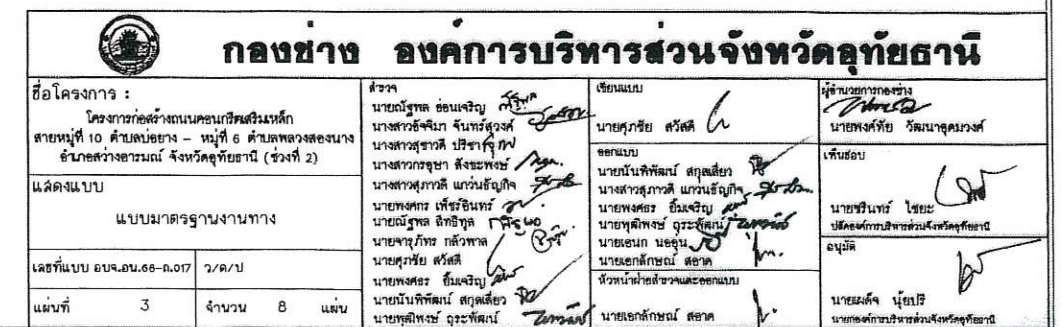 กองช่าง องค์การบริหารส่วนจังหวัดอุทัยธานี
ชื่อโครงการ :
โครงการก่อสร้างถนนคอนกรีตเสริมเหล็ก
สายหมู่ที่ 10 ตำบลบ่อยาง - หมู่ที่ 6 ตำบลพลวงสองนาง
อำเภอสว่างอารมณ์ จังหวัดอุทัยธานี (ช่วงที่ 2)
แสดงแบบ
แบบมาตรฐานงานทาง
เลขที่แบบ อบจ.อน.66-ถ.017 ว/ด/ป
แผ่นที่ 3 จำนวน 8 แผ่น
สำรวจ
นายณัฐพล อ่อนเจริญ
นางสาวอัจจิมา จันทร์สุวงค์
นางสาวสุชาวดี ปรีชา
นางสาวกรอุษา สังขะพงษ์
นางสาวสุภาวดี แกว่นธัญกิจ
นายพงศกร เพ็ชรอินทร์
นายณัฐพล ลิทธิทูล
นายจารุภัทร กลัวพาล
นายศุภชัย สวัสดี
นายพงศธร ยิ้มเจริญ
นายนันทิพัฒน์ สกุลเสี่ยว
นายพุฒิพงษ์ ถุระพัฒน์
เขียนแบบ
นายศุภชัย สวัสดี
ออกแบบ
นายนันทิพัฒน์ สกุลเสี่ยว
นางสาวสุภาวดี แกว่นธัญกิจ
นายพงศธร ยิ้มเจริญ
นายพุฒิพงษ์ ถุระพัฒน์
นายเอนก นออุ่น
นายเอกลักษณ์ สอาด
หัวหน้าฝ่ายสำรวจและออกแบบ
นายเอกลักษณ์ สอาด
ผู้อำนวยการกองช่าง
นายพงศ์ทัย วัฒนาอุดมวงศ์
เห็นชอบ
นายชรินทร์ ไชยะ
ปลัดองค์การบริหารส่วนจังหวัดอุทัยธานี
อนุมัติ
นายเผด็จ นุ้ยปรี
นายกองค์การบริหารส่วนจังหวัดอุทัยธานี